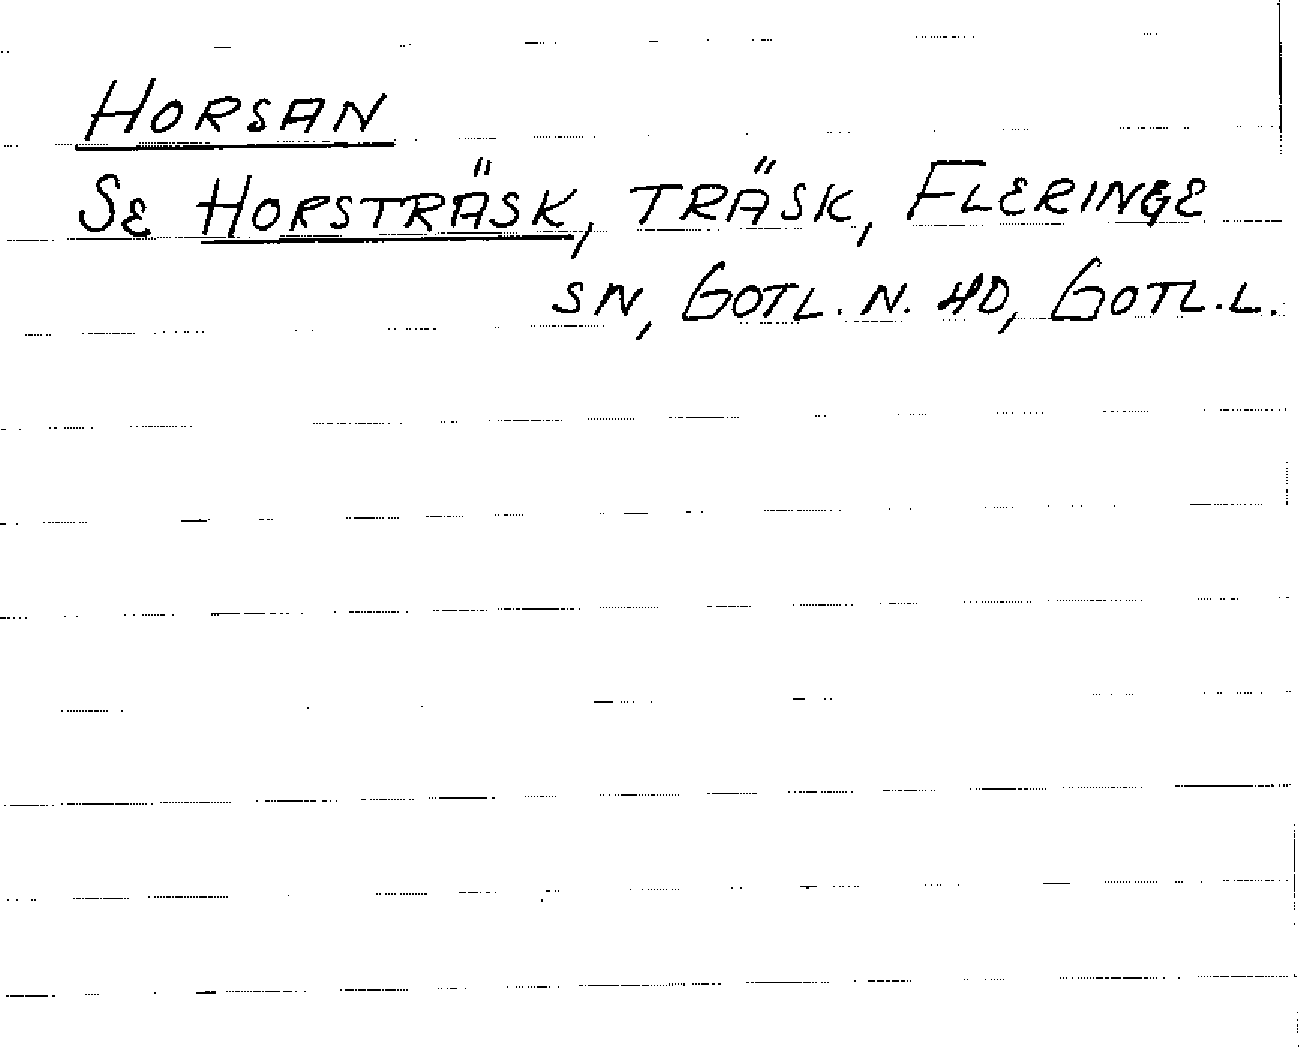 HORSAN
SE HORSTRÄSK, TRÄSK, FLERINGE
SN, GOTL. N. HD, GOTL. L.